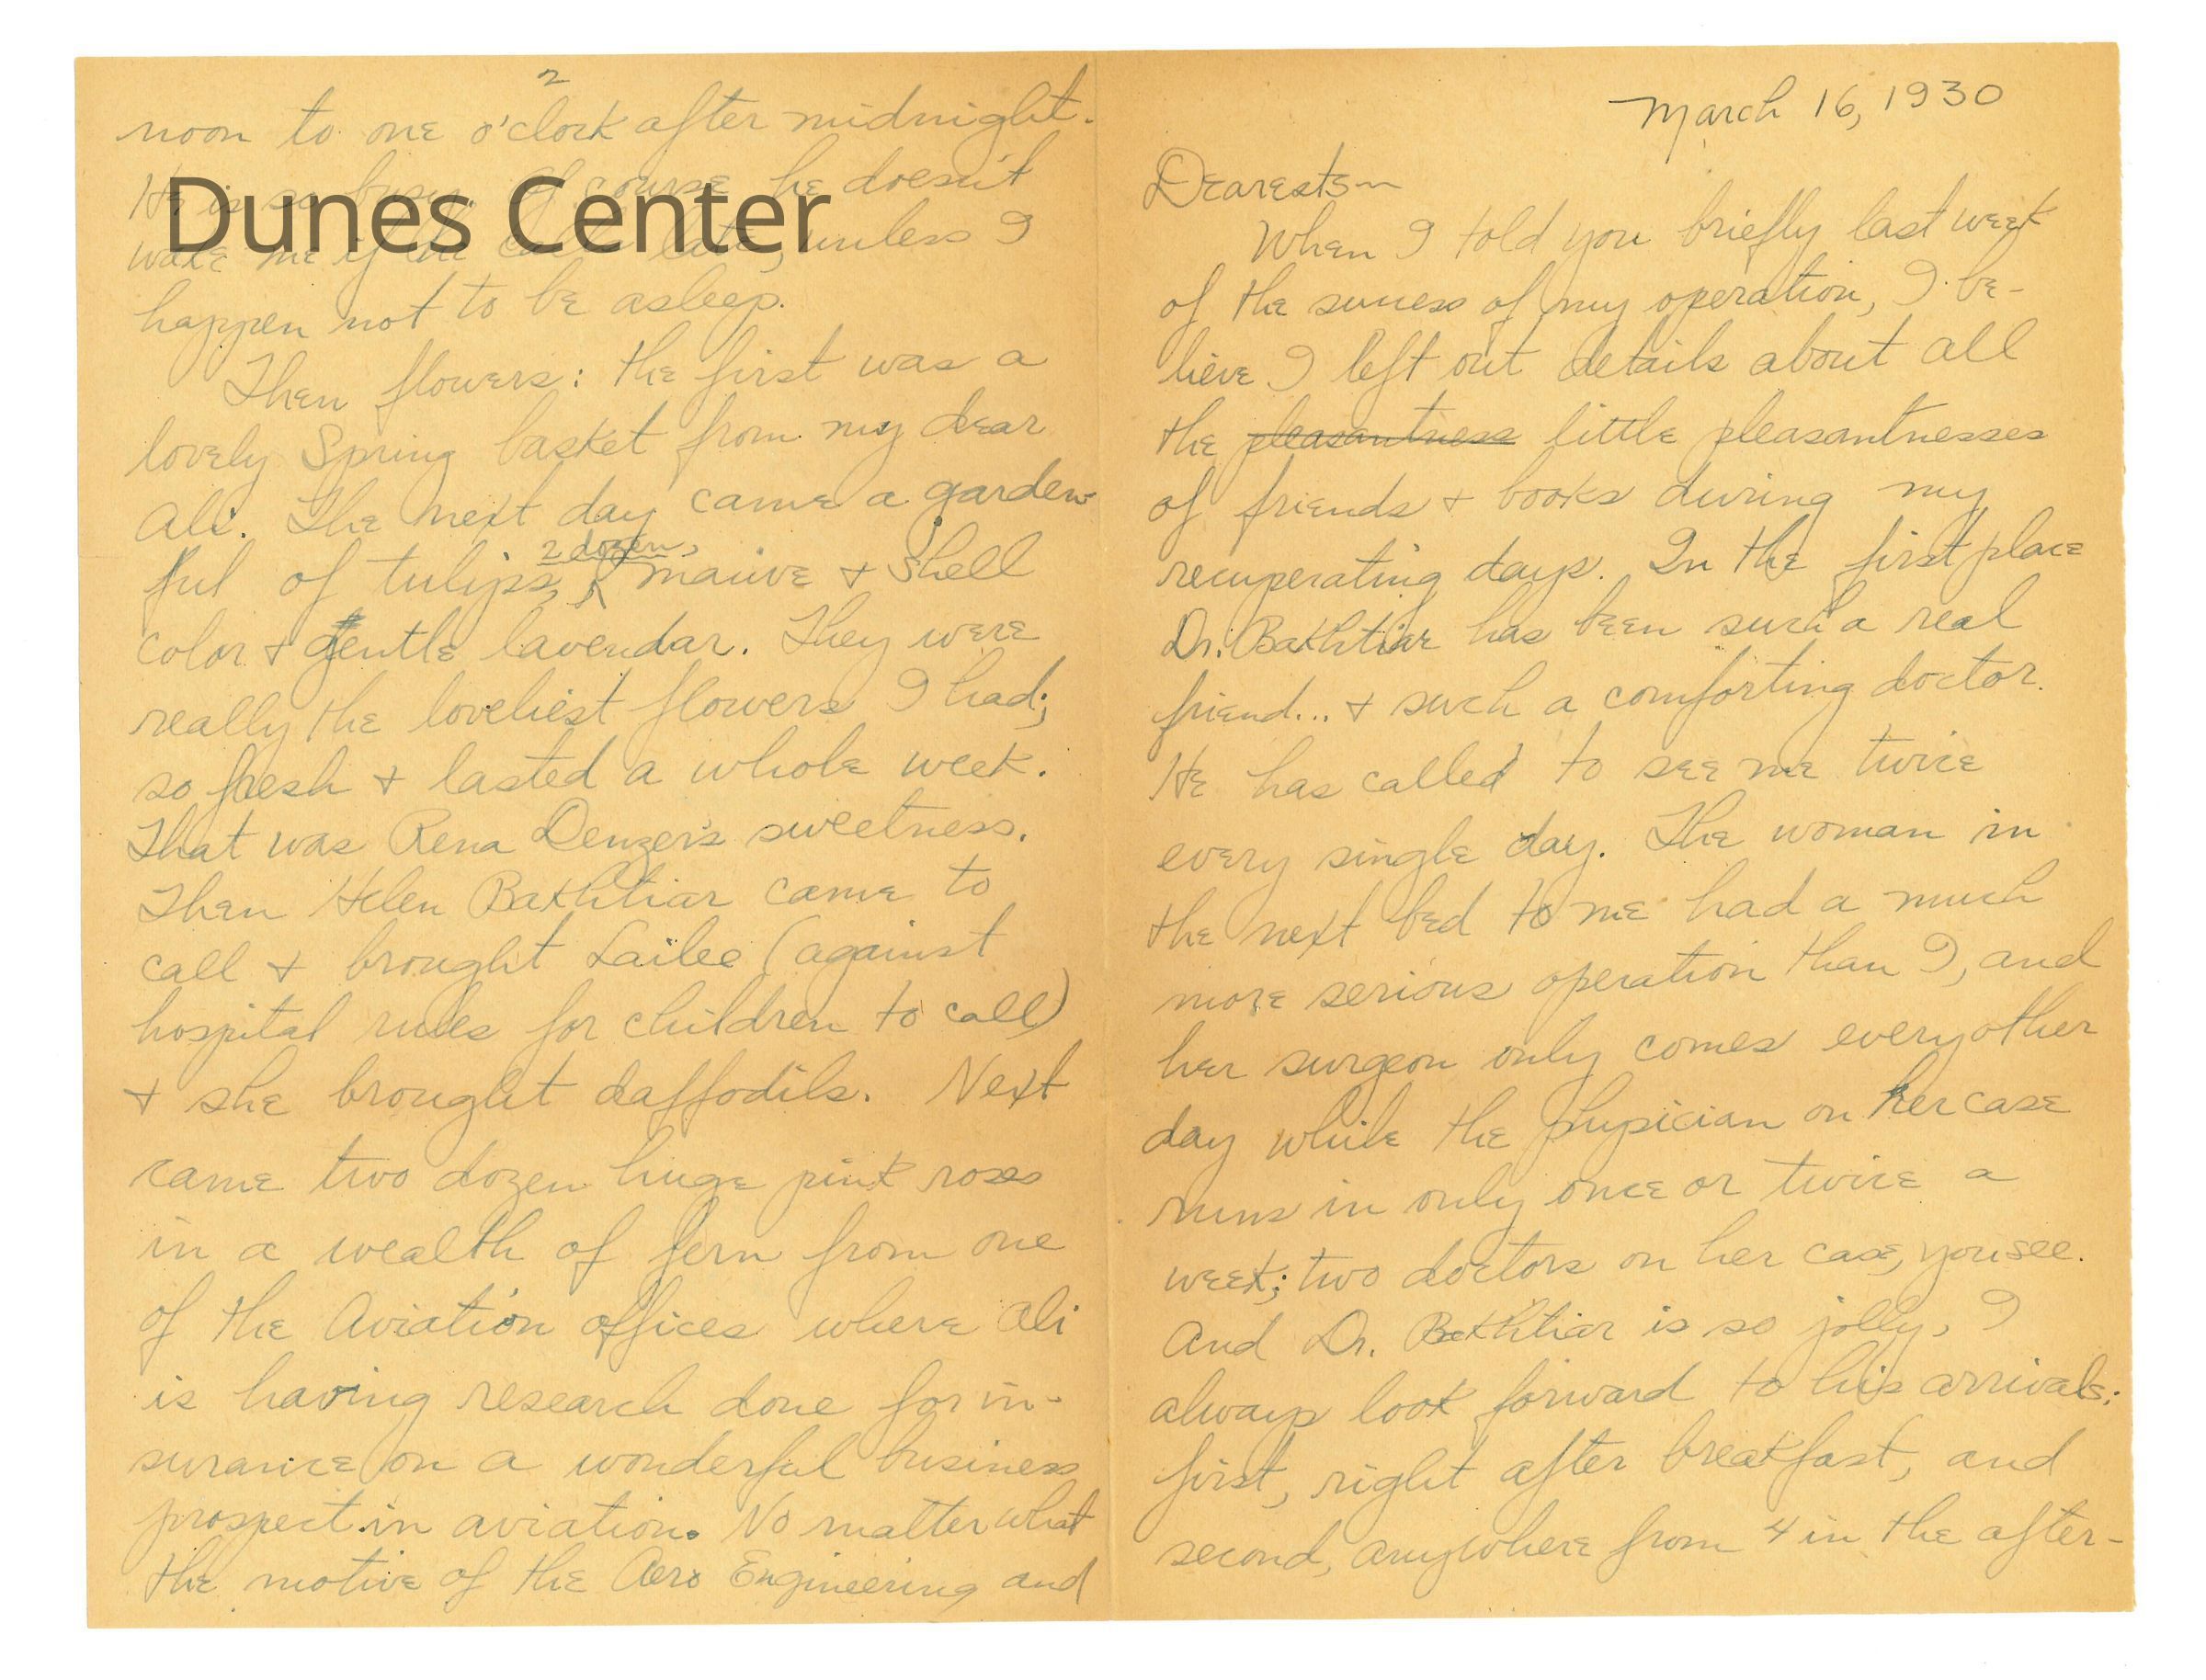 March 16, 1930
Dearests—
When I told you briefly last week
of the success of my operation, I be-
lieve I left out details about all
the pleasantness little pleasantnesses
of friends + books during my
recuperating days. In the first place
Dr. Bakhtiar has been such a real
friend... + such a comforting doctor.
He has called to see me twice
every single day. The woman in
the next bed to me had a much
more serious operation than I, and
her surgeon only comes every other
day while the physician on her case
runs in only once or twice a
week; two doctors on her case, you see.
And Dr. Bakhtiar is so jolly, I
always look forward to his arrivals:
first, right after breakfast, and
second, anywhere from 4 in the after-
2
noon to one o'clock after midnight.
He is so busy. Of course he doesn't
wake me if he calls late, unless I
happen not to be asleep.
Then flowers: the first was a
lovely Spring basket from my dear
Ali. The next day came a garden-
ful of tulips, 2 dozen, mauve + shell
color + gentle lavendar. They were
really the loveliest flowers I had;
so fresh + lasted a whole week.
That was Rena Denzer's sweetness.
Then Helen Bakhtiar came to
call + brought Lailee (against
hospital rules for children to call)
+ she brought daffodils. Next
came two dozen huge pink roses
in a wealth of fern from one
of the Aviation offices where Ali
is having research done for in-
surance on a wonderful business
prospect in aviation. No matter what
the motive of the Aero Engineering and
Dunes Center